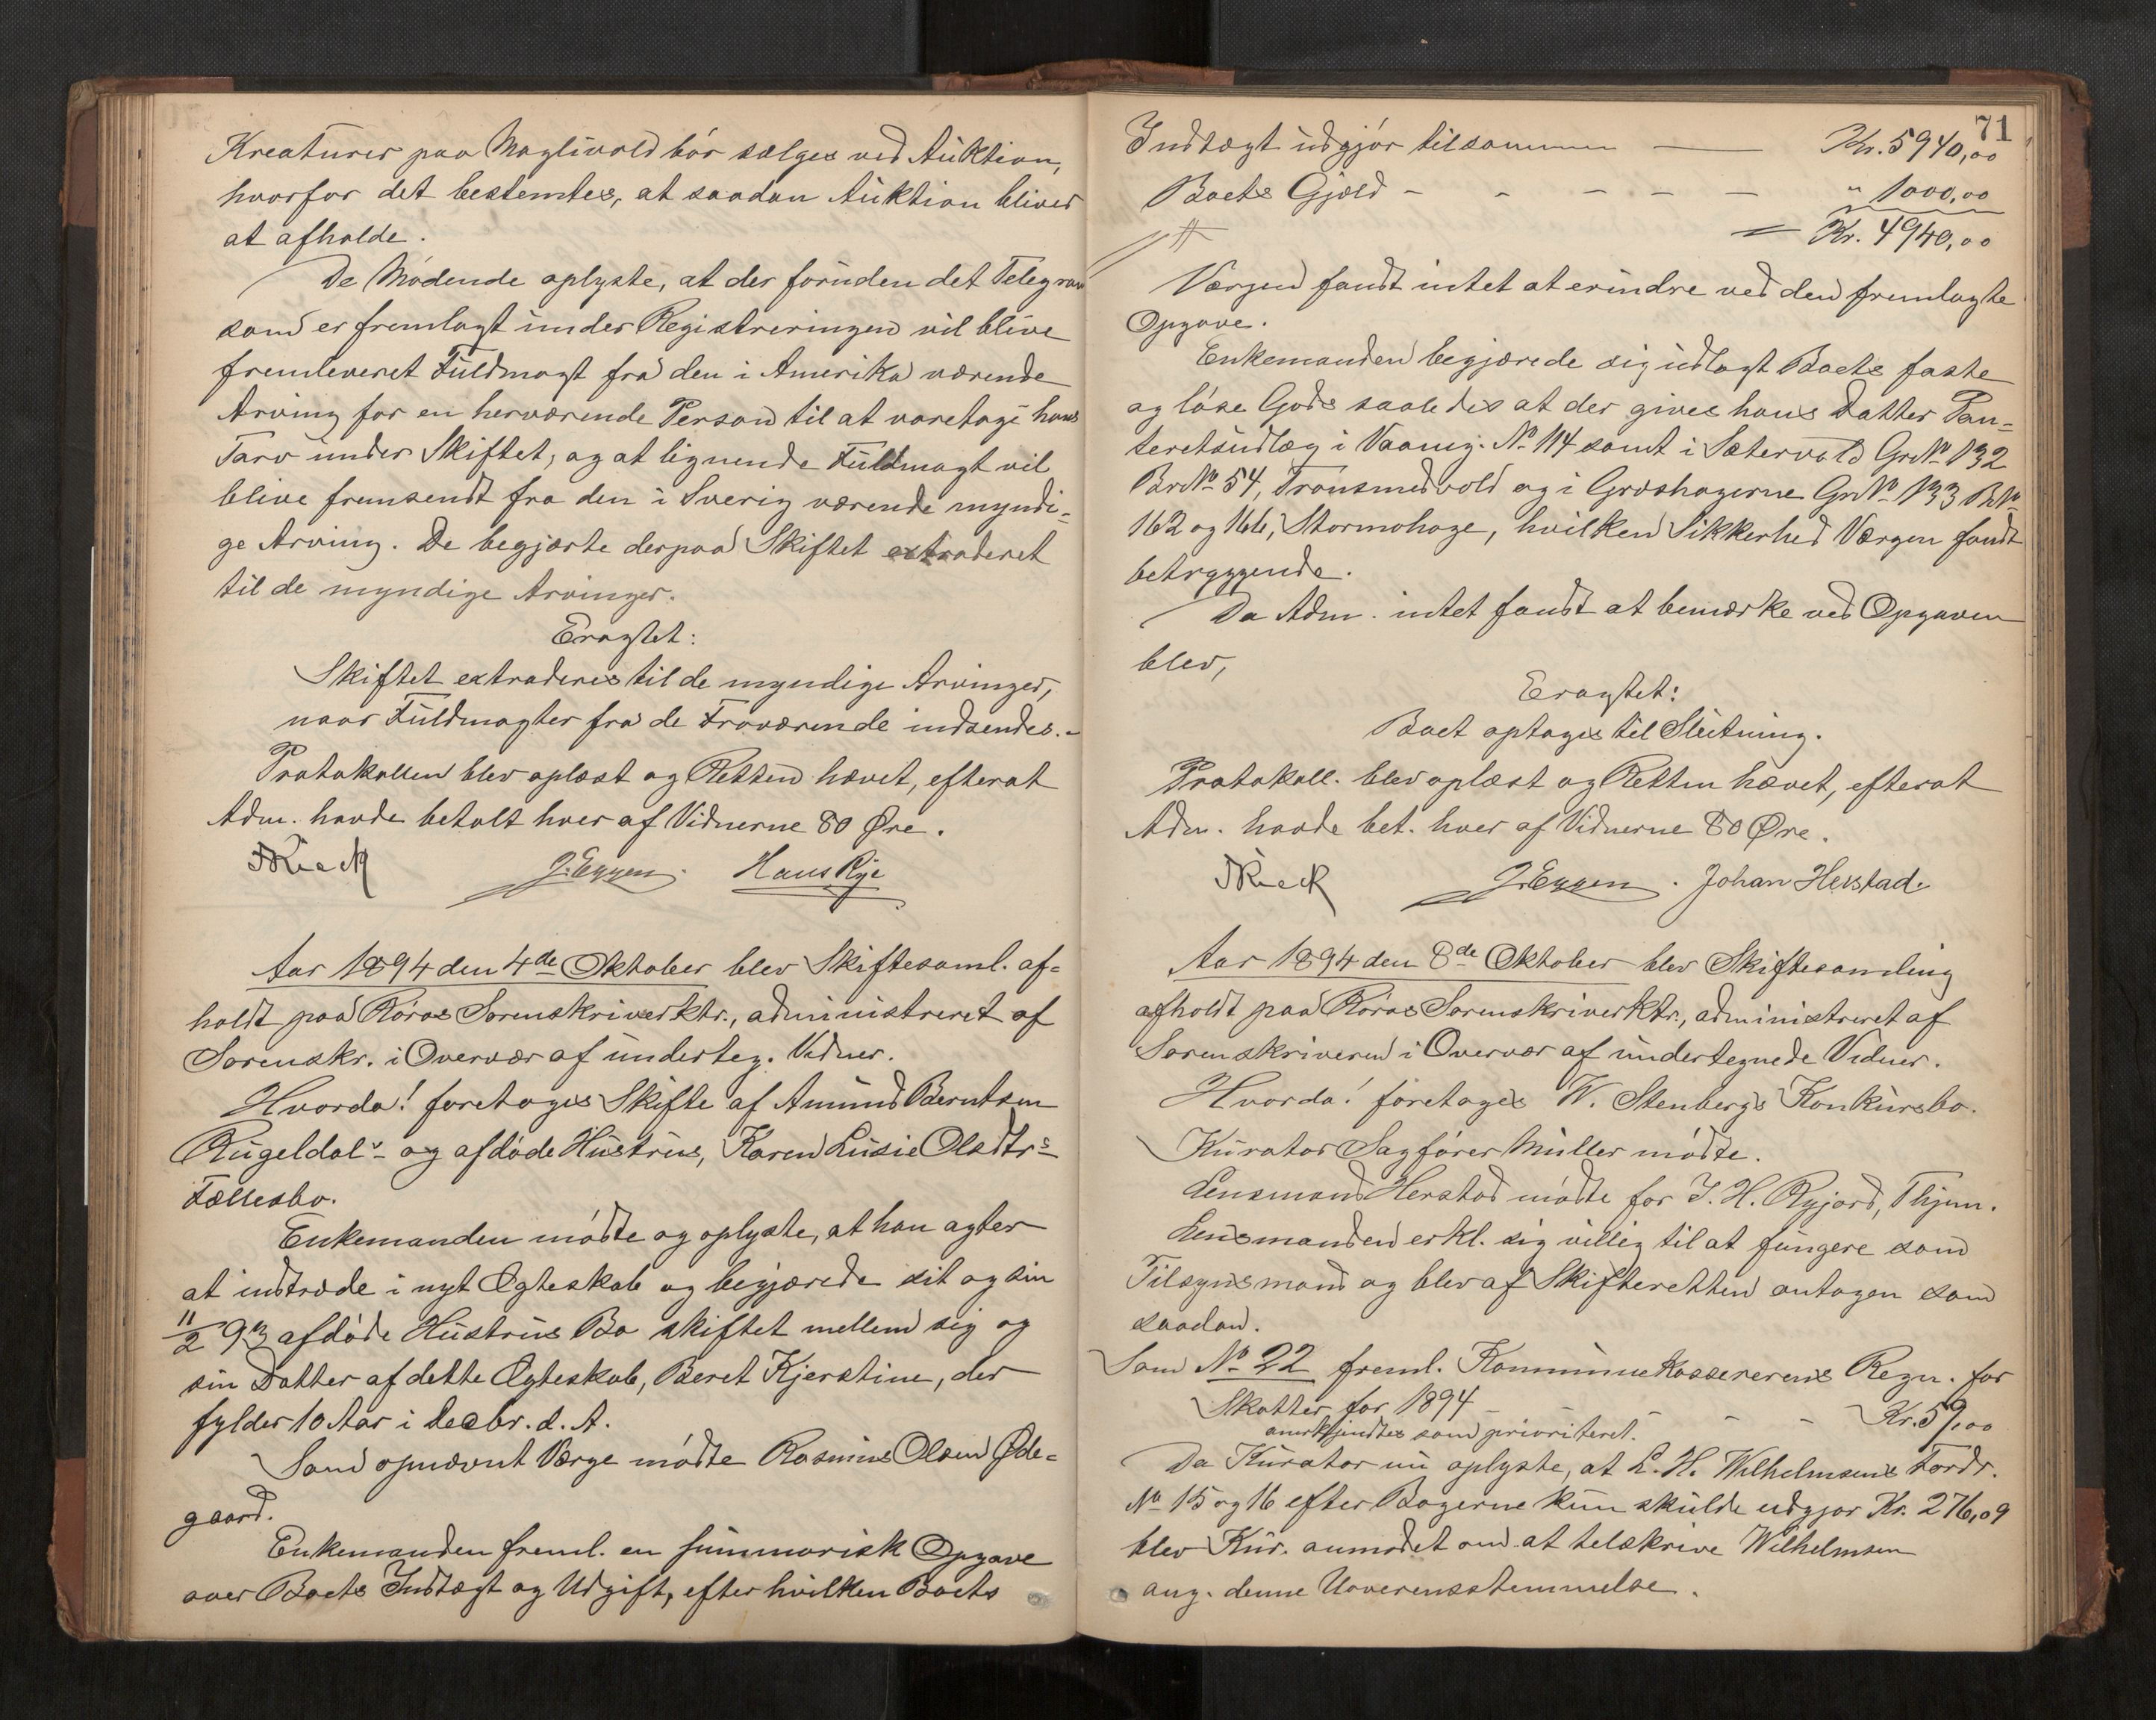 Kreaturer paa Moglivold bør sælges ved Auktion,
hvorfor det bestemtes, at saadan Auktion bliver
at afholde.
De Mødende oplyste, at der foruden det Telegram
som er fremlagt under Registreringen vil blive
fremleveret Fuldmagt fra den i Amerika værende
Arving for en herværende Person til at varetage hans
Tarv under Skiftet, og at lignende Fuldmagt vil
blive fremsendt fra den i Sverig værende myndi-
ge Arving. De begjærte derpaa Skiftet extraderet
til de myndige Arvinger.
Eragtet:
Skiftet extraderes til de myndige Arvinger,
naar Fuldmagter fra de Fraværende indsendes.-
Protokollen blev oplæst og Retten hævet, efterat
Adm. havde betalt hver af Vidnerne 80 Øre.
J. Eggen. Hans Rye
Aar 1894 den 4de Oktober blev Skiftesaml. af-
holdt paa Røros Sorenskriverktr., administreret af
Sorenskr. i Overvær af underteg. Vidner.
Hvorda! foretoges Skifte af Amund Berntsen
Rugeldals og afdøde Hustrus, Karen Lusie Olsdtrs
Fællesbo.
Enkemanden mødte og oplyste, at han agter
at indtræde i nyt Ægteskab og begjærede sit og sin
11/2 93 afdøde Hustrus Bo skiftet mellem sig og
sin Datter af dette Ægteskab, Beret Kjerstine, der
fylder 10 Aar i Decbr. d. A.
Som opnævnt Værge mødte Rasmus Olsen Øde-
gaard.
Enkemanden freml. en summarisk Opgave
over Boets Indtægt og Udgift, efter hvilken Boets
71
Indtægt udgjør tilsammen — Kr. 5940,00
Boets Gjæld - - - - - " 1000,00
= Kr. 4940,00
Værgen fandt intet at erindre ved den fremlagte
Opgave.
Enkemanden begjærede sig udlagt Boets faste
og løse Gods saaledes at der gives hans Datter Pan-
teretsudlæg i Vaaning. No 114 samt i Sætervold GrNo 132
BrNo 54, Tronsmedvold og i Græshagerne GrNo 133 BrNo
162 og 166, Stormohage, hvilken Sikkerhed Værgen fandt
betryggende.
Da Adm. intet fandt at bemærke ved Opgaven
blev,
Eragtet:
Boet optages til Slutning.
Protokoll. blev oplæst og Retten hævet, efterat
Adm. havde bet. hver af Vidnerne 80 Øre.
J. Eggen. Johan Herstad.
Aar 1894 den 8de Oktober blev Skiftesamling
afholdt paa Røros Sorenskriverktr., administreret af
Sorenskriveren i Overvær af undertegnede Vidner.
Hvorda! foretoges W. Stenbergs Konkursbo.
Kurator Sagfører Müller mødte.
Lensmand Herstad mødte for J. H. Ryjord, Thjem.
Lensmanden erkl. sig villig til at fungere som
Tilsynsmand og blev af Skifteretten antagen som
saadan.
Som No 22 freml. Kommunekassererens Regn. for
Skatter for 1894 - - - - Kr. 59,00
anerkjendtes som prioriteret.
Da Kurator nu oplyste, at L. H. Wilhelmsens Fordr.
No 15 og 16 efter Bøgerne kun skulde udgjør Kr. 276,09
blev Kur. anmodet om at tilskrive Wilhelmsen
ang. denne Uoverensstemmelse.